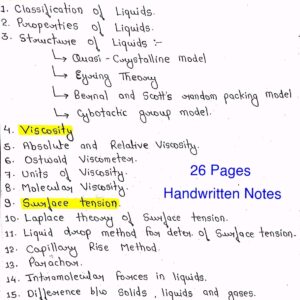 1. Classification of Liquids.
2. Properties of Liquids.
3. Structure of Liquids :-
↳ Quasi - Crystalline model
↳ Eyring Theory
↳ Bernal and Scott's random packing model
↳ Cybotactic group model.
4. Viscosity
5. Absolute and Relative Viscosity.
6. Ostwald Viscometer.
7. Units of Viscosity.
8. Molecular Viscosity.
9. Surface tension.
26 Pages
Handwritten Notes
10. Laplace theory of Surface tension.
11. Liquid drop method for deter. of Surface tension.
12. Capillary Rise Method.
13. Parachor.
14. Intramolecular Forces in liquids.
15. Difference b/w Solids, liquids and gases.